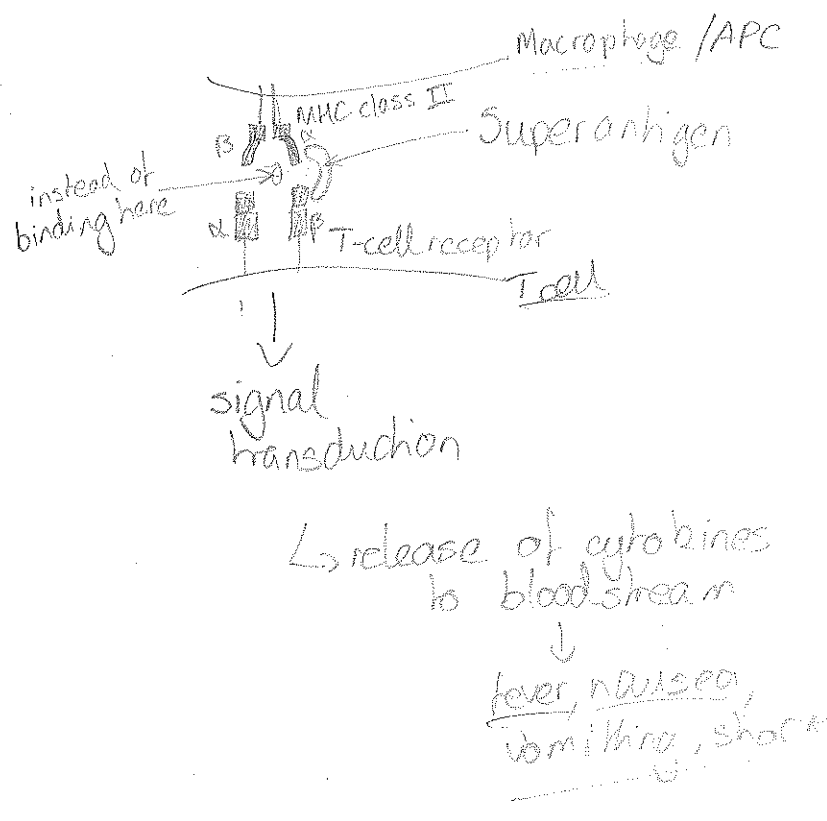 Macrophage /APC
MHC class II
β
α
Superantigen
instead of
binding here
α
β
T-cell receptor
T cell
signal
transduction
↳ release of cytokines
to bloodstream
↓
fever, nausea,
vomitting, shock